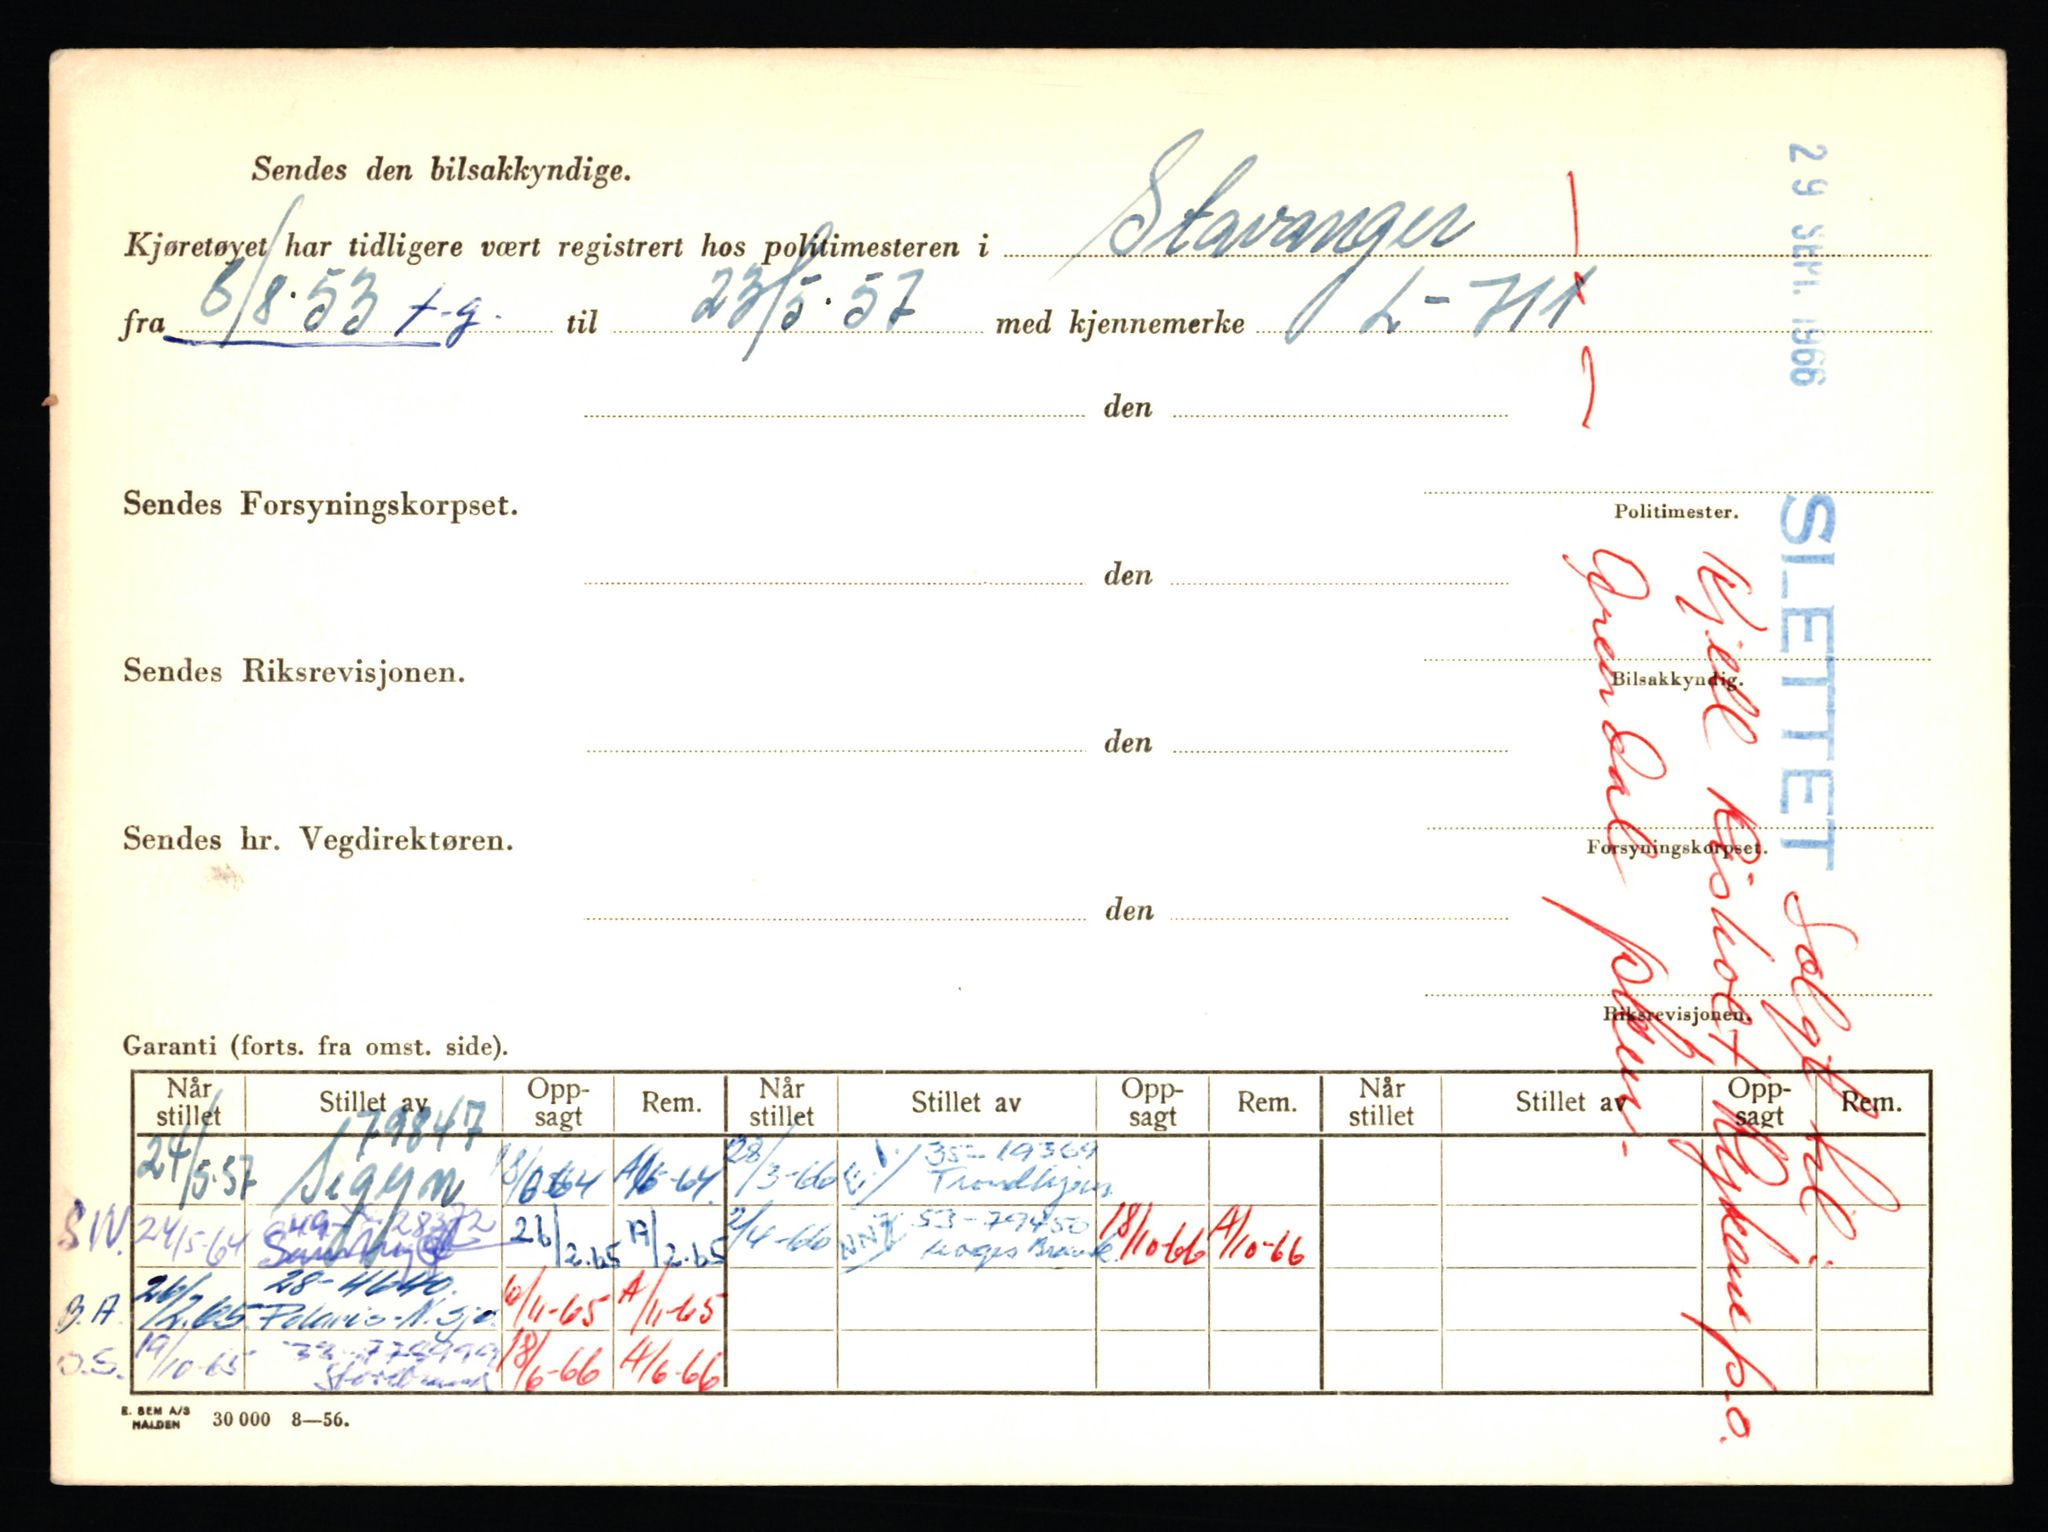 Sendes den bilsakkyndige.
Kjøretøyet har tidligere vært registrert hos politimesteren i Stavanger
fra 6/8.53 t-g. til 23/5.57 med kjennemerke L-711
den
Sendes Forsyningskorpset.
Politimester.
den
Sendes Riksrevisjonen.
Bilsakkyndig.
den
Sendes hr. Vegdirektøren.
Forsyningskorpset.
den
Riksrevisjonen.
29 SEPT. 1966
SLETTET Solgt til
Kjell Risholt, Rykene p.o.
Grendal pkern.
Garanti (forts. fra omst. side).
Når stillet Stillet av Opp-sagt Rem. Når stillet Stillet av Opp-sagt Rem. Når stillet Stillet av Opp-sagt Rem.
24/5.57 179847 Sigyn 18/6-64 A/6-64. 28/3-66 35-19369 Trondhjem
S.W. 24/5-64 49-28372 26/2.65 19/2.65 2/4-66 53-79450 Norges Brannk. 18/10-66 A/10-66
B.A. 26/2.65. 28-4640. Polaris-N.Sjø. 10/11-65 A/11-65
O.S. 19/10-65 33-778999 Storebrand 18/6-66 A/6-66
E. SEM A/S
HALDEN 30 000 8—56.